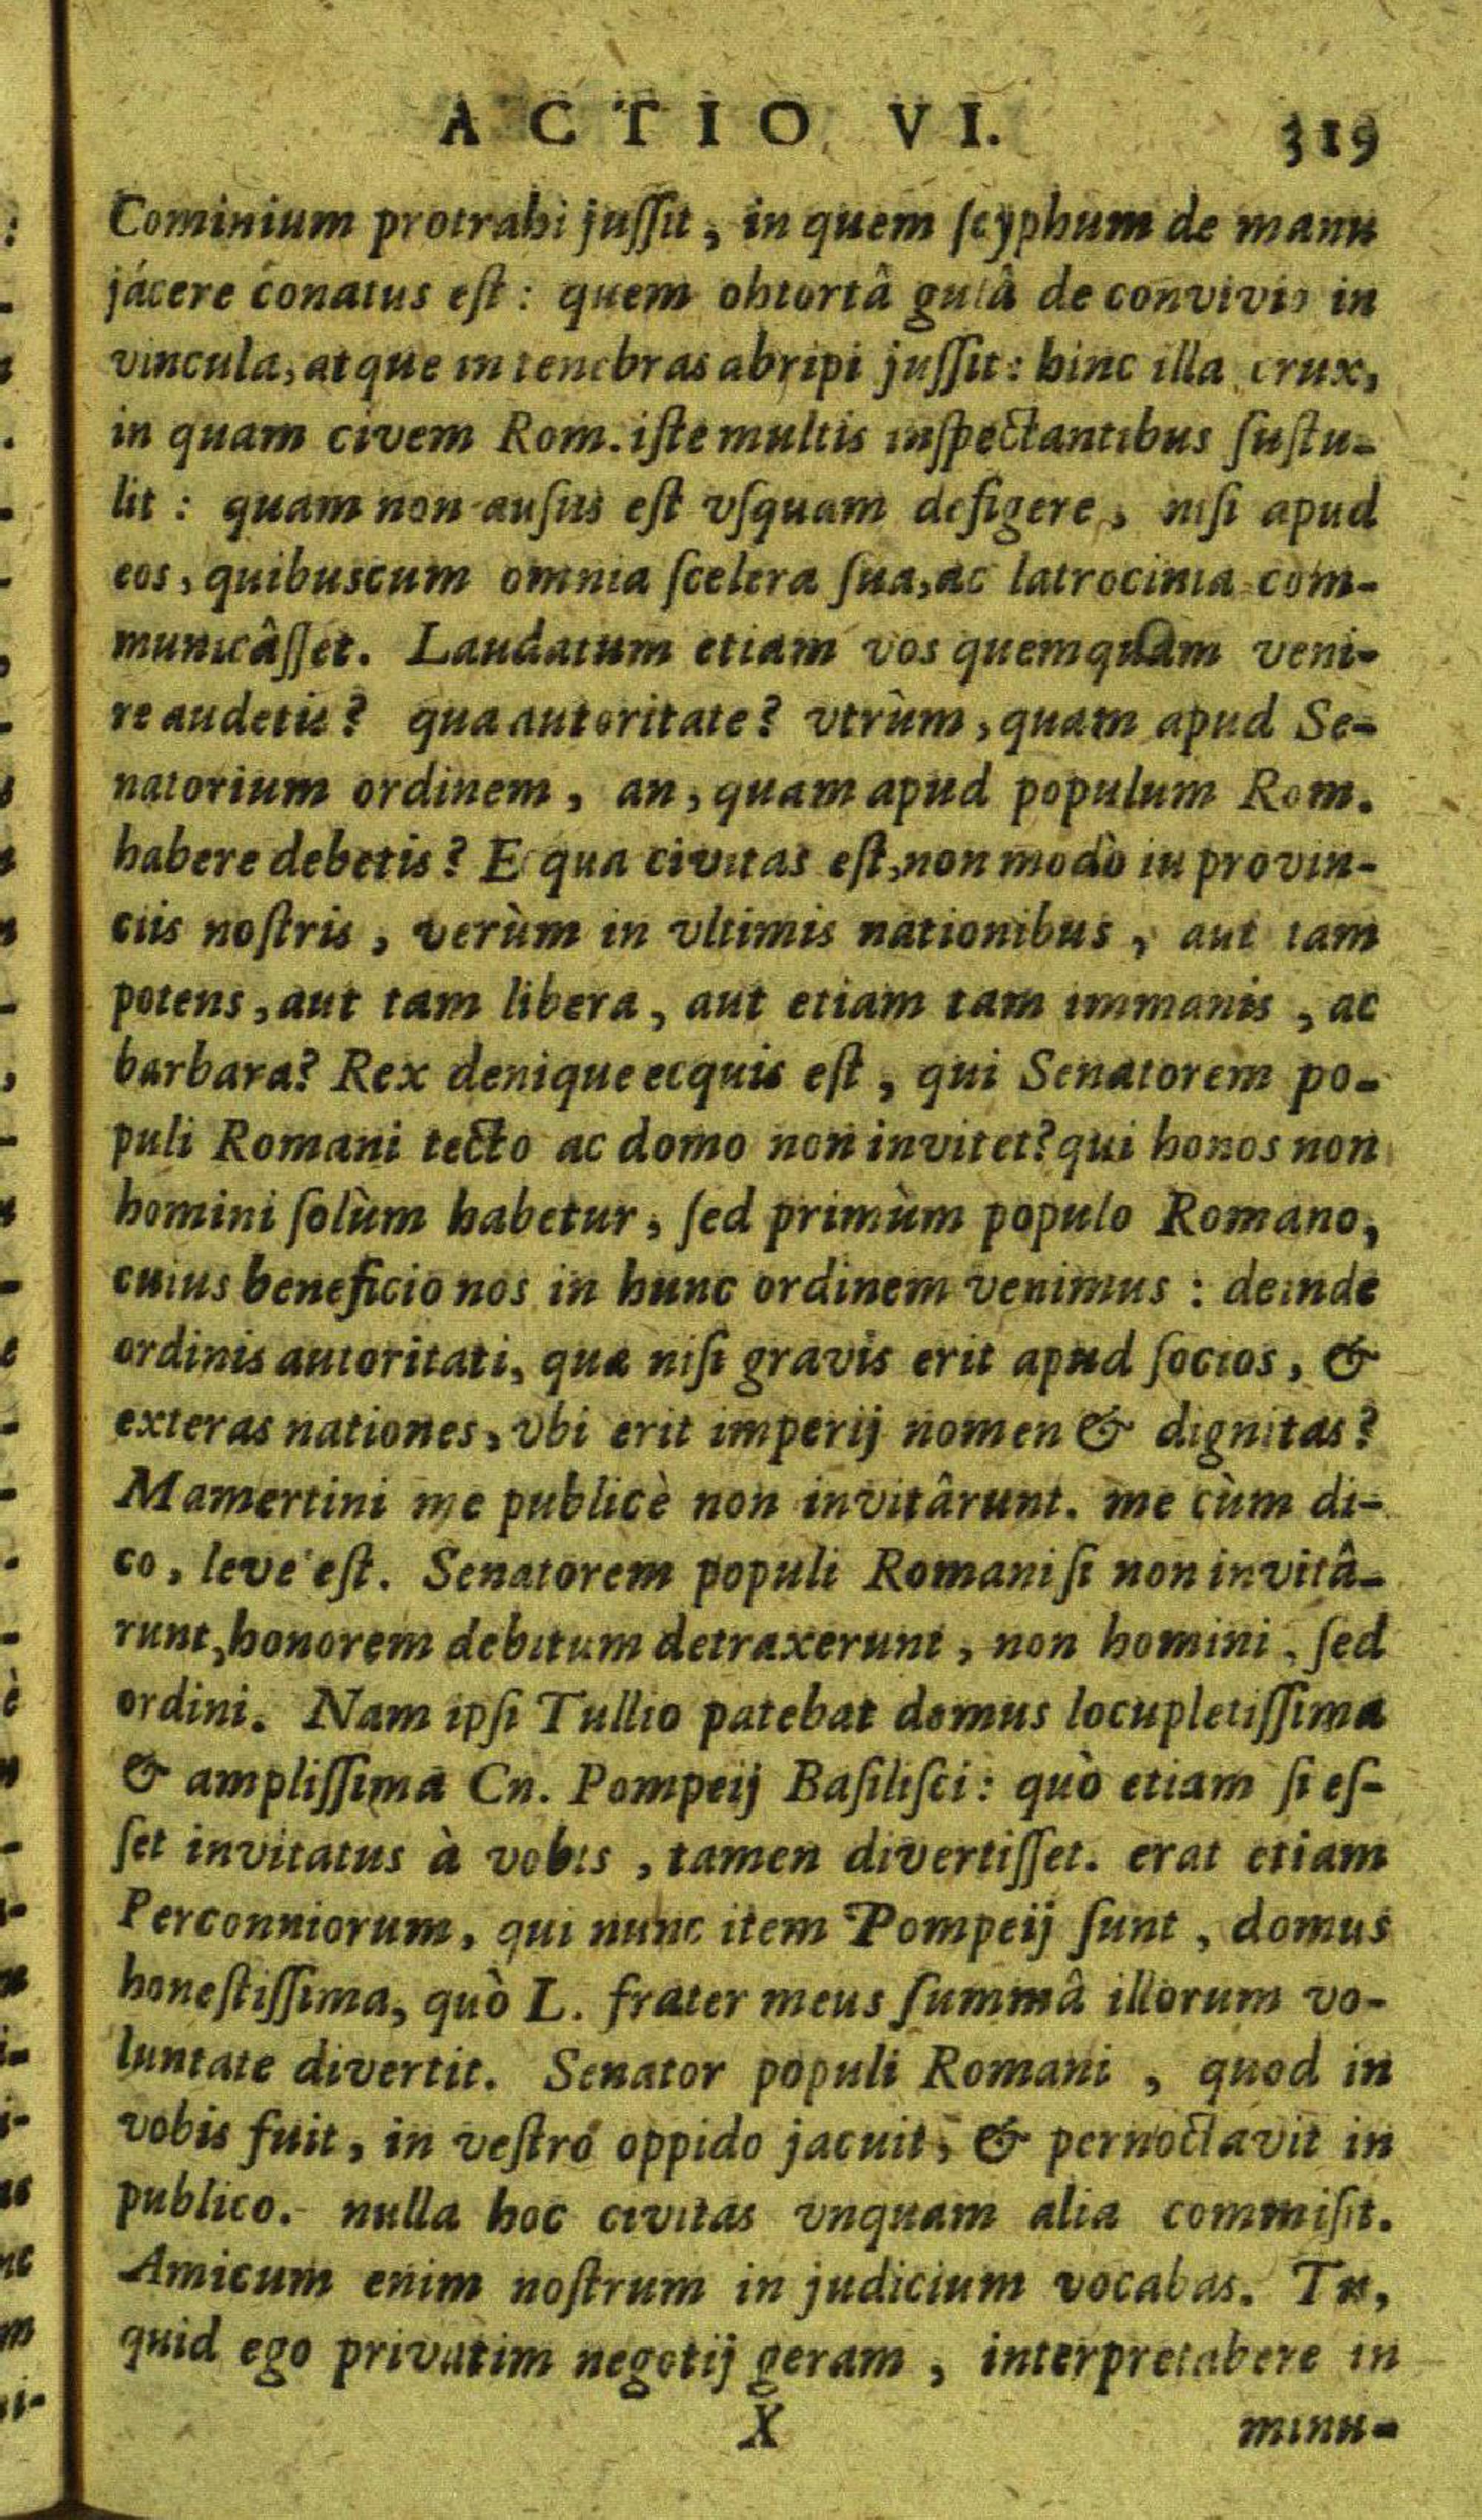 ACTIO VI. 319
Cominium protrahi juſſit, in quem ſcyphum de manu
jácere conatus eſt: quem obtortâ gulâ de convivio in
vincula, atque in tenebras abripi juſſit: hinc illa crux,
in quam civem Rom. iſte multis inſpectantibus ſuſtu-
lit: quam non auſus eſt vſquam defigere, niſi apud
eos, quibuscum omnia ſcelera ſua, ac latrocinia com-
municâſſet. Laudatum etiam vos quemquam veni-
re audetis? qua autoritate? vtrùm, quam apud Se-
natorium ordinem, an, quam apud populum Rom.
habere debetis? Ecqua civitas eſt, non modò in provin-
ciis noſtris, verùm in vltimis nationibus, aut tam
potens, aut tam libera, aut etiam tam immanis, ac
barbara? Rex denique ecquis eſt, qui Senatorem po-
puli Romani tecto ac domo non invitet? qui honos non
homini ſolùm habetur, ſed primùm populo Romano,
cuius beneficio nos in hunc ordinem venimus: deinde
ordinis autoritati, quæ niſi gravis erit apud ſocios, &
exteras nationes, vbi erit imperij nomen & dignitas?
Mamertini me publicè non invitârunt. me cùm di-
co, leve eſt. Senatorem populi Romani ſi non invitâ-
runt, honorem debitum detraxerunt, non homini, ſed
ordini. Nam ipſi Tullio patebat domus locupletiſſima
& ampliſſima Cn. Pompeij Baſiliſci: quò etiam ſi eſ-
ſet invitatus à vobis, tamen divertiſſet. erat etiam
Perconniorum, qui nunc item Pompeij ſunt, domus
honeſtiſſima, quò L. frater meus ſummâ illorum vo-
luntate divertit. Senator populi Romani, quod in
vobis fuit, in veſtro oppido jacuit, & pernoctavit in
publico. nulla hoc civitas vnquam alia commiſit.
Amicum enim noſtrum in judicium vocabas. Tu,
quid ego privatim negotij geram, interpretabere in
X minu-